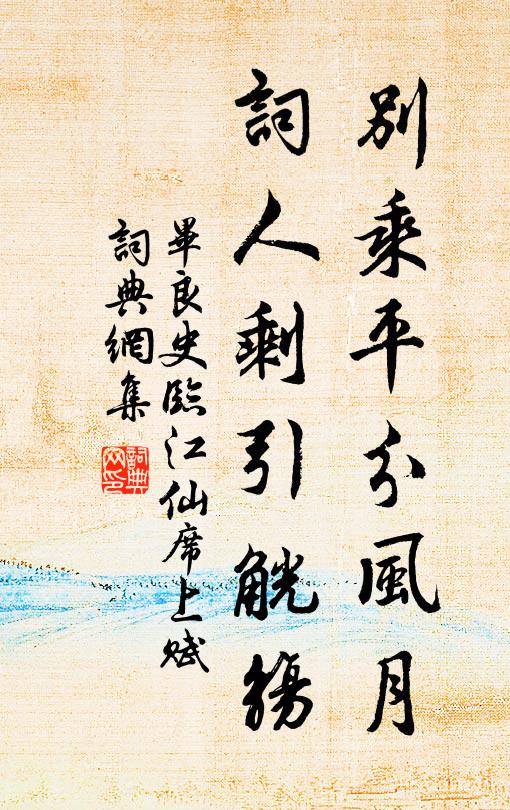 別乘平分風月
詞人剩引觥觴
畢良史臨江仙席上賦
詞典網集
詞典網印